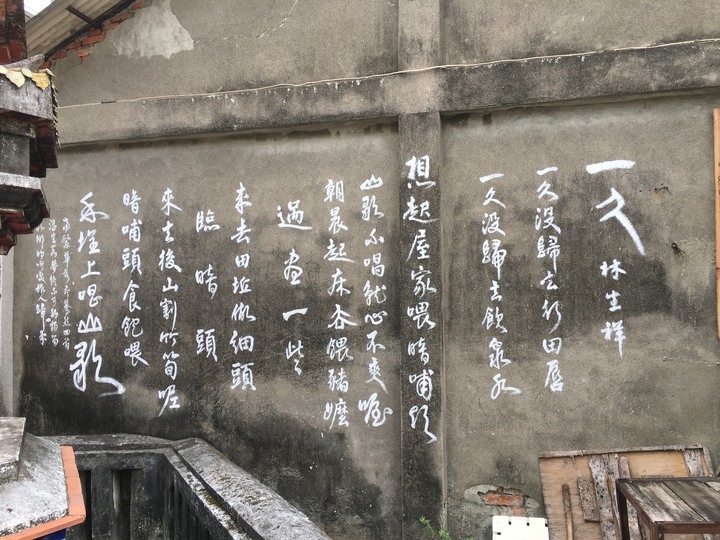 一久
林生祥
一久沒歸去行田唇
一久沒歸去飲泉水
想起屋家喂暗哺頭
山歌不唱就心不爽喔
朝晨起床谷餵豬嬤
過畫一些
來去田坵做細頭
臨暗頭
來去後山割竹筍喔
暗哺頭食飽喂
禾埕上唱山歌